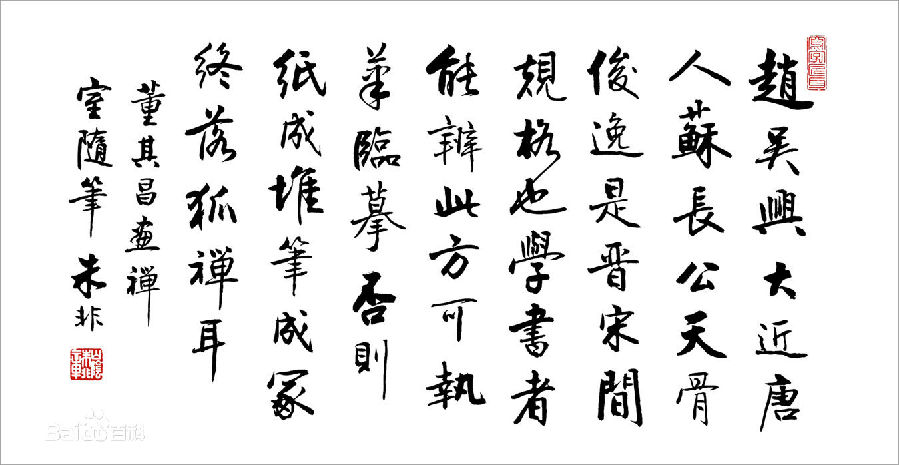 趙吳興大近唐
人蘇長公天骨
俊逸是晋宋間
規格也學書者
能辨此方可執
筆臨摹否則
紙成堆筆成冢
終落狐禪耳
董其昌畫禪
室隨筆朱非
Baidu百科